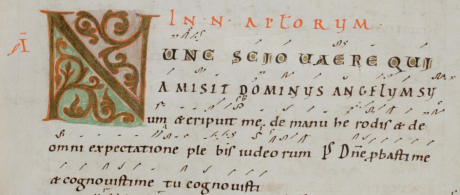 IN N APLORUM
Ā NUNC SCIO VAERE QUI
A MISIT DOMINUS ANGELUM SU
um & eripuit me, de manu he rodis & de
omni expectatione ple bis iudeo rum Ps Dne pbasti me
& cognovisti me tu cognovisti